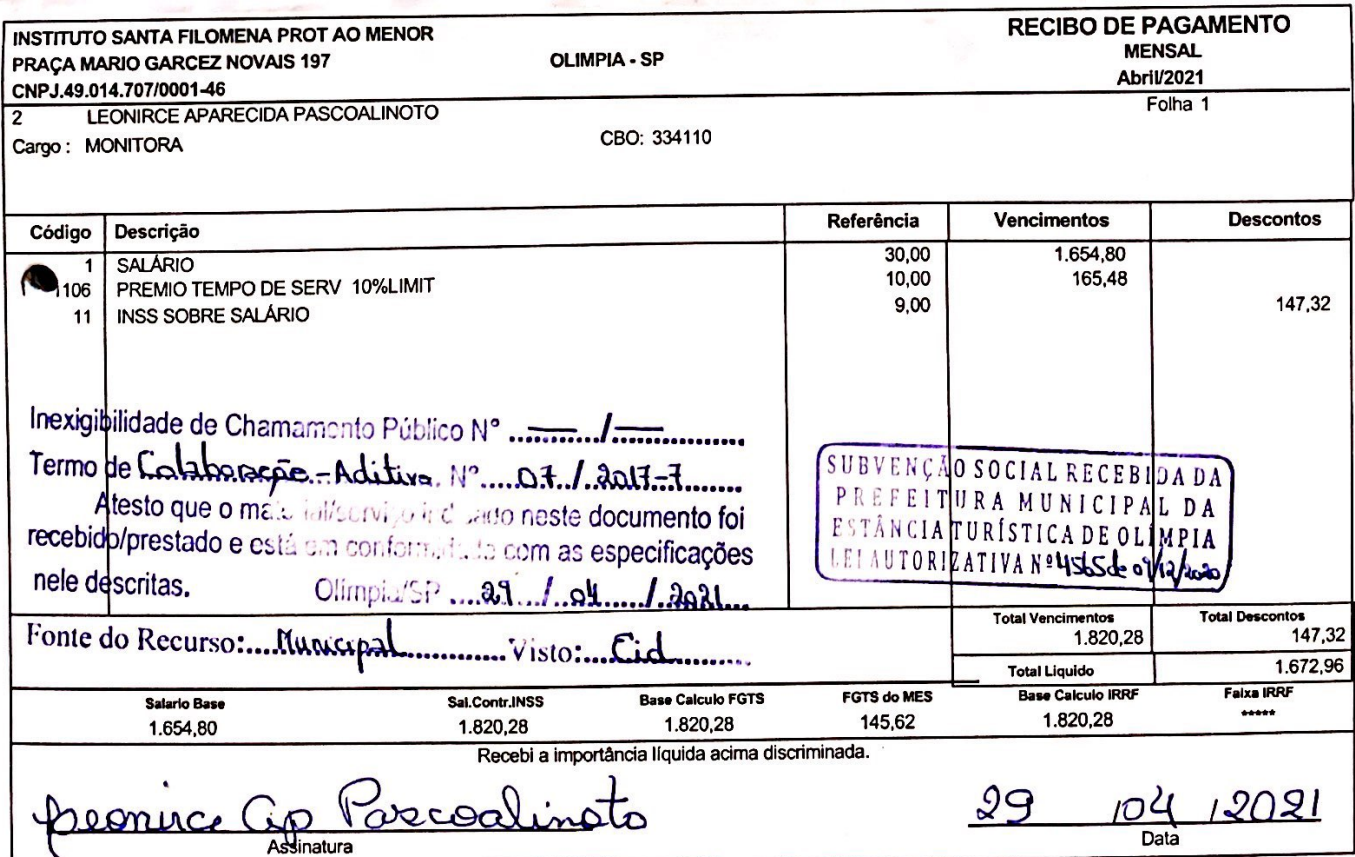 INSTITUTO SANTA FILOMENA PROT AO MENOR
RECIBO DE PAGAMENTO
PRAÇA MARIO GARCEZ NOVAIS 197 OLIMPIA - SP
MENSAL
CNPJ.49.014.707/0001-46
Abril/2021
2 LEONIRCE APARECIDA PASCOALINOTO
Folha 1
Cargo : MONITORA CBO: 334110
Código Descrição Referência Vencimentos Descontos
1 SALÁRIO 30,00 1.654,80
106 PREMIO TEMPO DE SERV 10%LIMIT 10,00 165,48
11 INSS SOBRE SALÁRIO 9,00 147,32
Inexigibilidade de Chamamento Público N° ....—..../....—....
Termo de Colaboração - Aditivo. N° ..... 07 / 2017-7
Atesto que o material/serviço indicado neste documento foi
recebido/prestado e está em conformidade com as especificações
nele descritas. Olímpia/SP .... 29 / 04 / 2021
SUBVENÇÃO SOCIAL RECEBIDA DA
PREFEITURA MUNICIPAL DA
ESTÂNCIA TURÍSTICA DE OLÍMPIA
LEI AUTORIZATIVA Nº 4565 de 09/12/2020
Fonte do Recurso:....Municipal............Visto:....Cid.........
Total Vencimentos Total Descontos
1.820,28 147,32
Total Liquido 1.672,96
Salario Base Sal.Contr.INSS Base Calculo FGTS FGTS do MES Base Calculo IRRF Faixa IRRF
1.654,80 1.820,28 1.820,28 145,62 1.820,28 *****
Recebi a importância líquida acima discriminada.
Leonirce Ap Pascoalinoto 29 / 04 / 2021
Assinatura Data